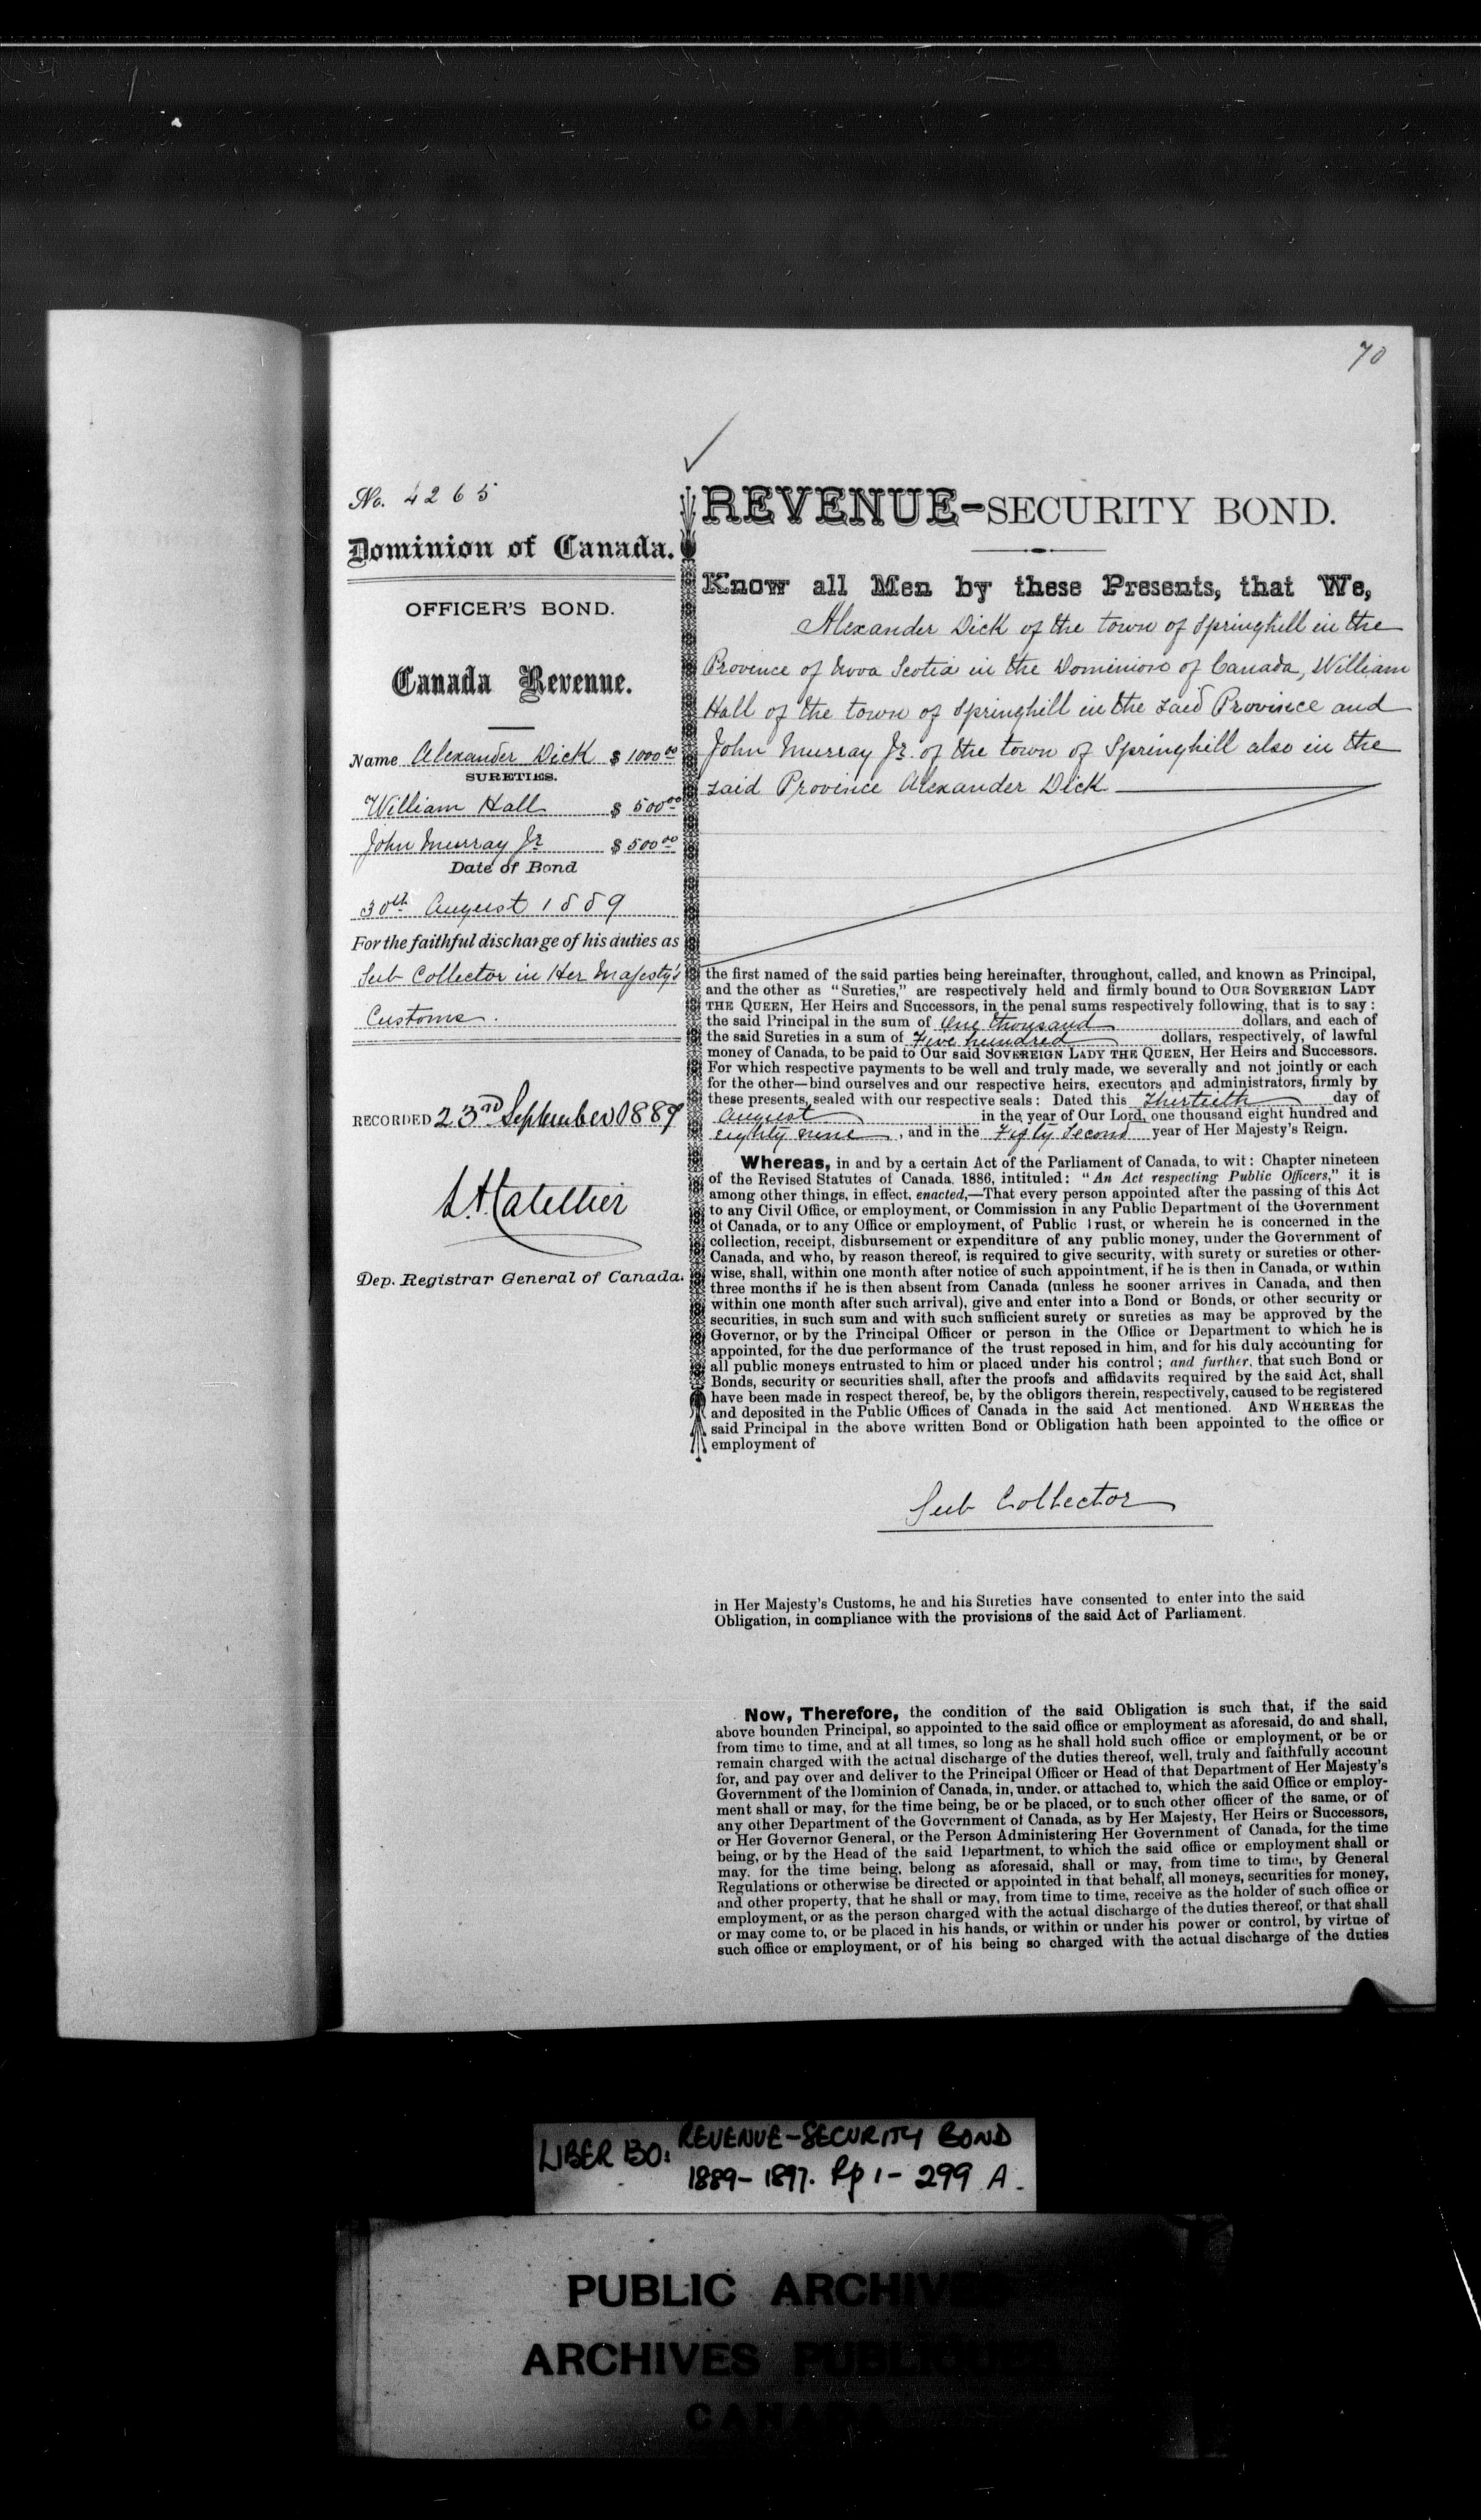 70
No. 4265
Dominion of Canada.
OFFICER'S BOND.
Canada Revenue.
Name Alexander Dick $ 1000 00
SURETIES.
William Hall $ 500 00
John Murray Jr. $ 500 00
Date of Bond
30th August 1889
For the faithful discharge of his duties as
Sub Collector in Her Majesty's
Customs.
RECORDED 23rd September 1889
Dep. Registrar General of Canada.
REVENUE-SECURITY BOND.
Know all Men by these Presents, that We,
Alexander Dick of the town of Springhill in the
Province of Nova Scotia in the Dominion of Canada, William
Hall of the town of Springhill in the said Province and
John Murray Jr. of the town of Springhill also in the
said Province Alexander Dick
the first named of the said parties being hereinafter, throughout, called, and known as Principal,
and the other as "Sureties," are respectively held and firmly bound to OUR SOVEREIGN LADY
THE QUEEN, Her Heirs and Successors, in the penal sums respectively following, that is to say:
the said Principal in the sum of One thousand dollars, and each of
the said Sureties in a sum of Five hundred dollars, respectively, of lawful
money of Canada, to be paid to Our said SOVEREIGN LADY THE QUEEN, Her Heirs and Successors.
For which respective payments to be well and truly made, we severally and not jointly or each
for the other—bind ourselves and our respective heirs, executors and administrators, firmly by
these presents, sealed with our respective seals: Dated this Thirtieth day of
August in the year of Our Lord, one thousand eight hundred and
eighty nine, and in the Fifty Second year of Her Majesty's Reign.
Whereas, in and by a certain Act of the Parliament of Canada, to wit: Chapter nineteen
of the Revised Statutes of Canada, 1886, intituled: "An Act respecting Public Officers," it is
among other things, in effect, enacted,—That every person appointed after the passing of this Act
to any Civil Office, or employment, or Commission in any Public Department of the Government
of Canada, or to any Office or employment, of Public Trust, or wherein he is concerned in the
collection, receipt, disbursement or expenditure of any public money, under the Government of
Canada, and who, by reason thereof, is required to give security, with surety or sureties or other-
wise, shall, within one month after notice of such appointment, if he is then in Canada, or within
three months if he is then absent from Canada (unless he sooner arrives in Canada, and then
within one month after such arrival), give and enter into a Bond or Bonds, or other security or
securities, in such sum and with such sufficient surety or sureties as may be approved by the
Governor, or by the Principal Officer or person in the Office or Department to which he is
appointed, for the due performance of the trust reposed in him, and for his duly accounting for
all public moneys entrusted to him or placed under his control; and further, that such Bond or
Bonds, security or securities shall, after the proofs and affidavits required by the said Act, shall
have been made in respect thereof, be, by the obligors therein, respectively, caused to be registered
and deposited in the Public Offices of Canada in the said Act mentioned. AND WHEREAS the
said Principal in the above written Bond or Obligation hath been appointed to the office or
employment of
Sub Collector
in Her Majesty's Customs, he and his Sureties have consented to enter into the said
Obligation, in compliance with the provisions of the said Act of Parliament.
Now, Therefore, the condition of the said Obligation is such that, if the said
above bounden Principal, so appointed to the said office or employment as aforesaid, do and shall,
from time to time, and at all times, so long as he shall hold such office or employment, or be or
remain charged with the actual discharge of the duties thereof, well, truly and faithfully account
for, and pay over and deliver to the Principal Officer or Head of that Department of Her Majesty's
Government of the Dominion of Canada, in, under, or attached to, which the said Office or employ-
ment shall or may, for the time being, be or be placed, or to such other officer of the same, or of
any other Department of the Government of Canada, as by Her Majesty, Her Heirs or Successors,
or Her Governor General, or the Person Administering Her Government of Canada, for the time
being, or by the Head of the said Department, to which the said office or employment shall or
may, for the time being, belong as aforesaid, shall or may, from time to time, by General
Regulations or otherwise be directed or appointed in that behalf, all moneys, securities for money,
and other property, that he shall or may, from time to time, receive as the holder of such office or
employment, or as the person charged with the actual discharge of the duties thereof, or that shall
or may come to, or be placed in his hands, or within or under his power or control, by virtue of
such office or employment, or of his being so charged with the actual discharge of the duties
LIBER 130: REVENUE-SECURITY BOND
1889-1897. Pp 1-299 A.
PUBLIC ARCHIVES
ARCHIVES PUBLIQUES
CANADA